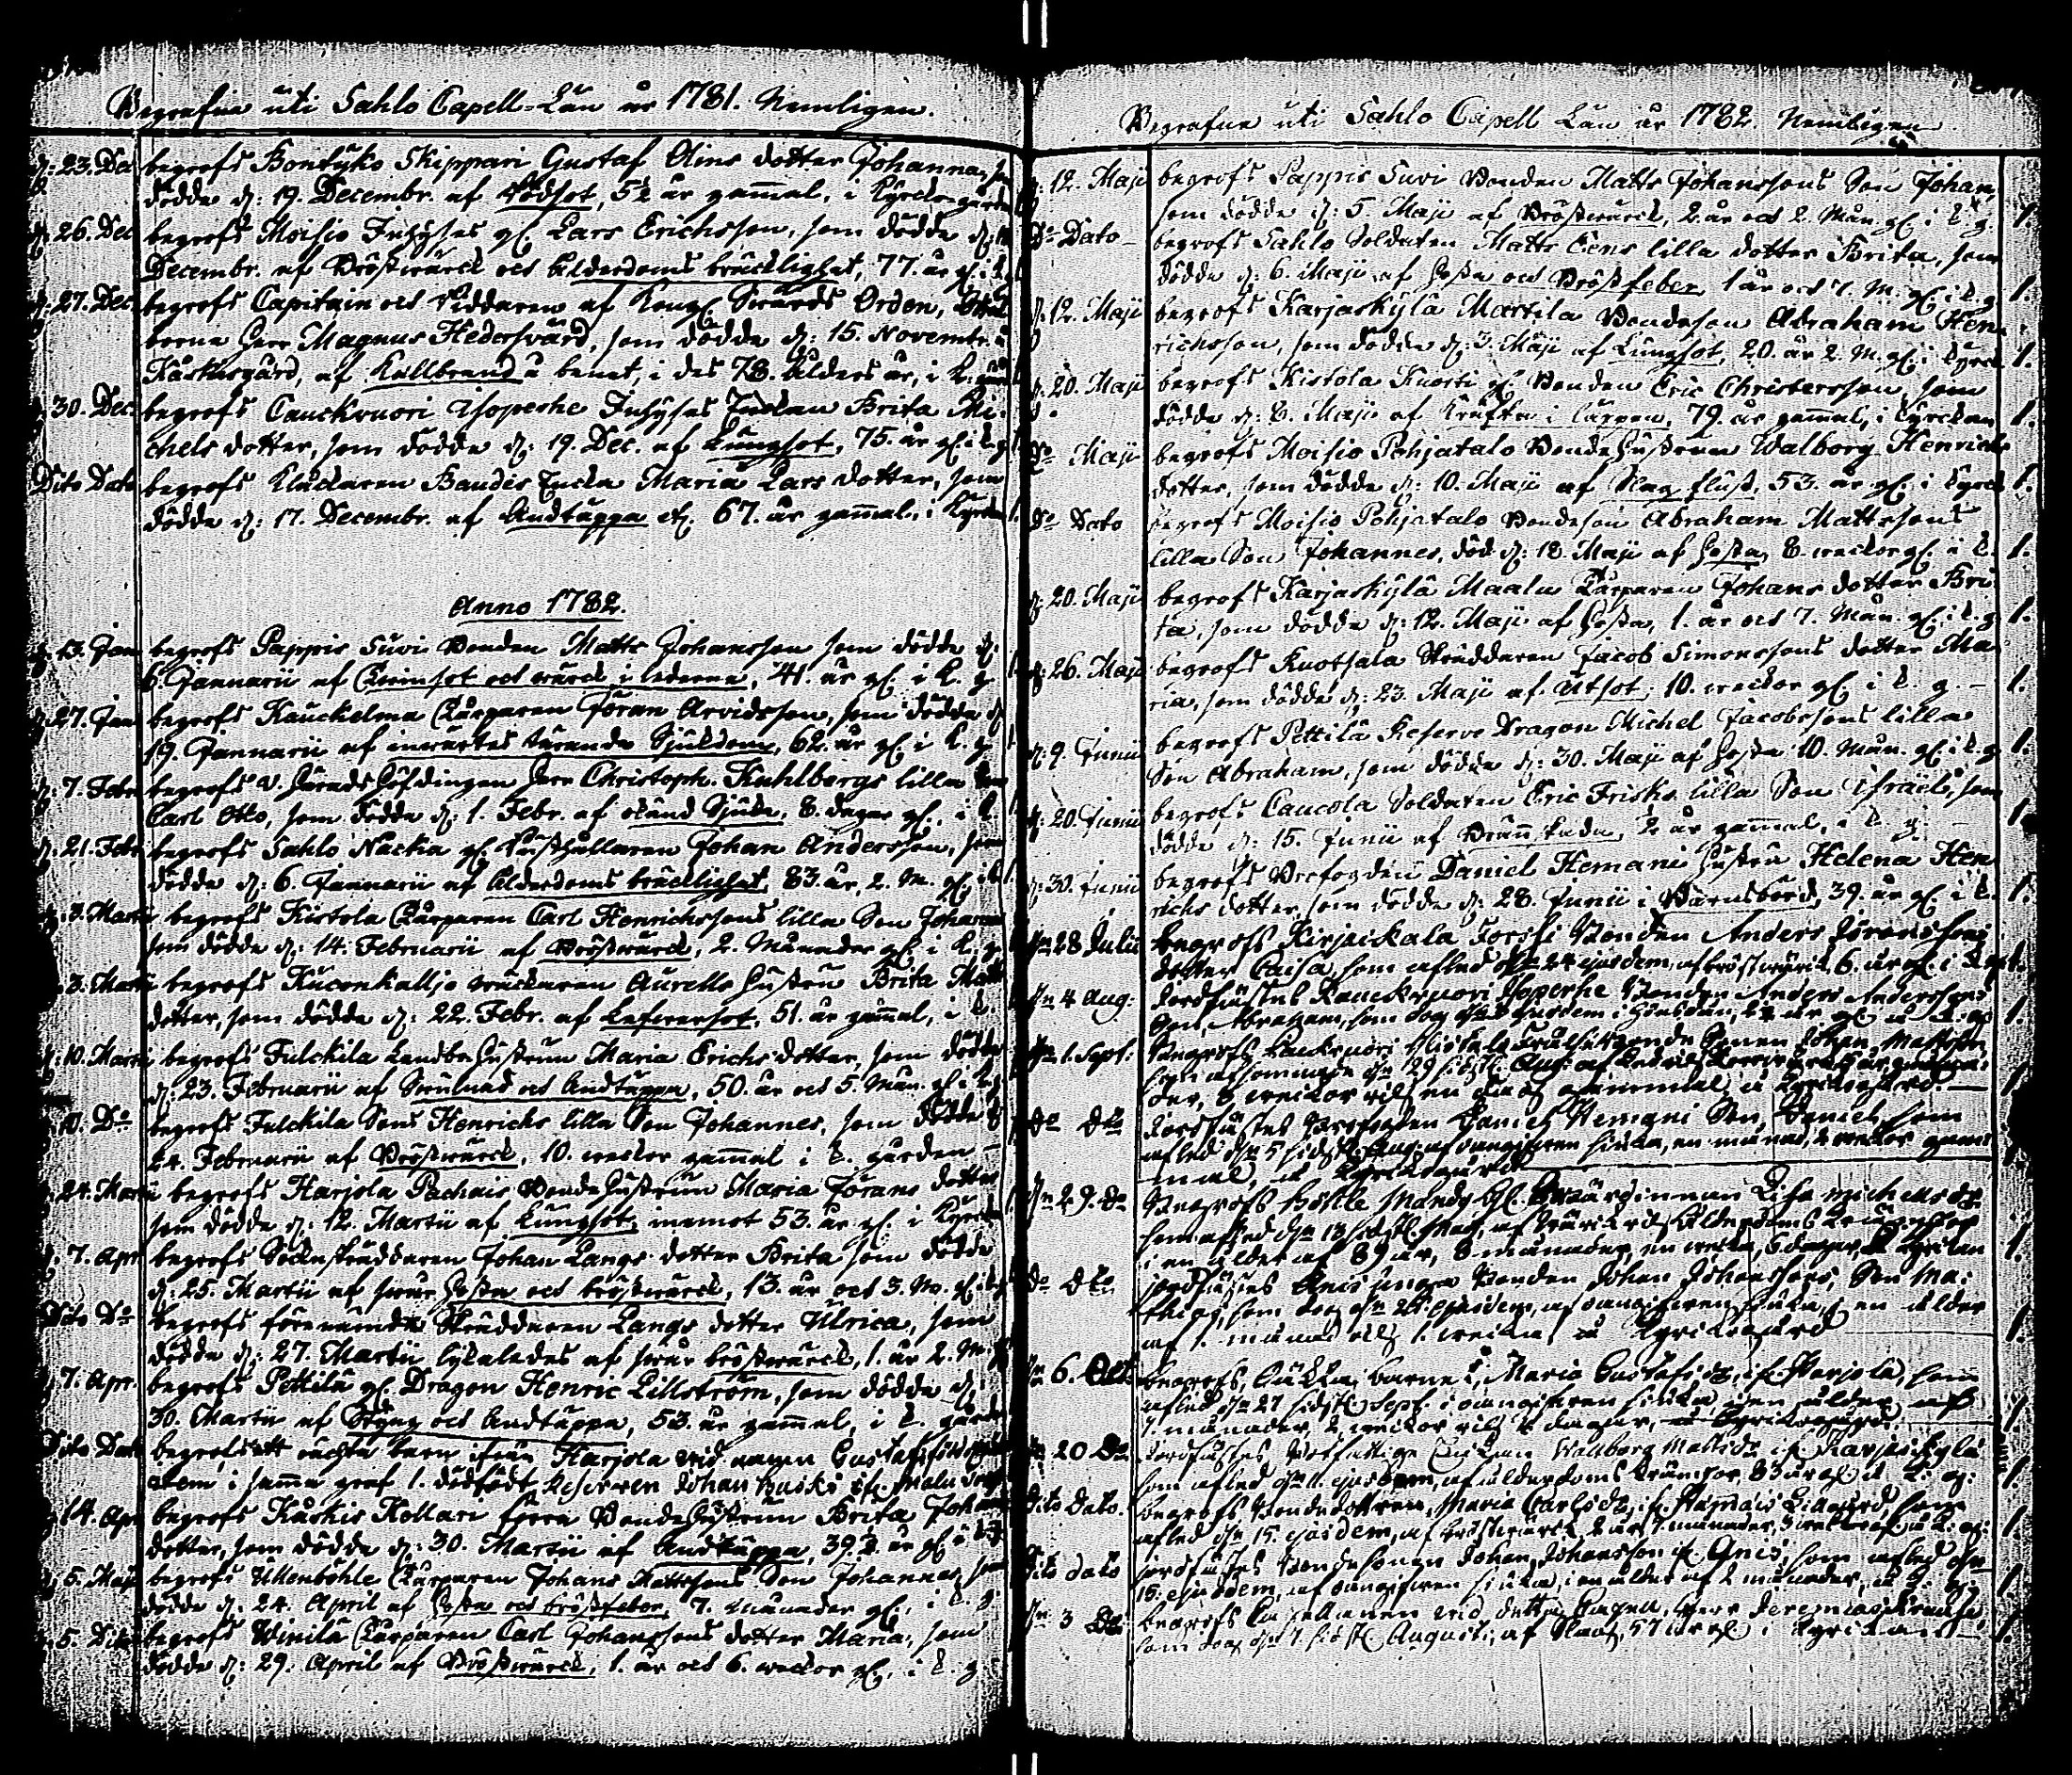 Begrafne uti Sahlo Capell-Län år 1781. Nemligen.
d: 23. Dec begrofs Bonikyko Skippari Gustaf Olins dotter Johanna,
dödde d: 19. Decembr. af Rödsot, 5½ år gammal, i Kyrckogården
d: 26. Dec begrofs Moisio Inhyses gl. Lars Erichsson, som dödde d:
Decembr. af Bröstwärck och Ålderdoms bräcklighet, 77. år gl. i
d: 27. Dec. begrofs Capitain och Riddaren af Kongl. Swärds Orden,
borne Herr Magnus Hedersvärd, som dödde d: 15. Novembr. å
Kåskisgård, af Kallbrand i benet, i des 78. ålders år, i K.
30. Dec begrofs Cauckvuori Isoperhe Inhyses Enckan Brita Mi-
chels dotter, som dödde d: 19. Dec. af Lungsot, 75. år gl. i k.g
Dito Dato begrofs Klåckaren Bandes Encka Maria Lars dotter, som
dödde d: 17. Decembr. af Andtäppa etc. 67. år gammal, i Kyrckan
Anno 1782.
d: 13. Jan begrofs Pappis Suvi Bonden Matts Johansson som dödde d:
6. Januarii af och wärck i lederna, 41. år gl. i K. g
d: 27. Jan begrofs Kauckelma Torparen Jöran Arvidsson, som dödde d
19. Januarii af inwärtes tärande Siukdom, 62. år gl. i K. g
d: 7. Febr begrofs V. Häradshöfdingen Herr Christoph. Kuhlbergs lilla Son
Carl Otto, som dödde d: 1. Febr. af okänd Sjuka, 8. dagar gl., i K.
d: 21. Febr begrofs Sahlo Näcka gl. Rusthållaren Johan Andersson, som
dödde d: 6. Januarii af Ålderdoms bräcklighet, 83. år, 2. M. gl.
d: 3. Martii begrofs Kistola Torparen Carl Henrichssons lilla Son Johannes
som dödde d: 14. Februarii af Bröstwärck, 2. Månader gl. i K. g
3. Martii begrofs Kuconkallio Aurells Hustru Brita Matts
dotter, som dödde d: 22. Febr. af Lefwersot, 51. år gammal, i K.
d: 10. Martii begrofs Fulckila Landbo Hustrun Maria Erichs dotter, som dödde
d: 23. Februarii af Swullnad och Andtäppa, 50. år och 5. Mån. gl.
10. Do begrofs Fulckila Sons Henrichs lilla Son Johannes, som dödde d
24. Februarii af Bröstwärck, 10. weckor gammal i K. gården
d: 24. Martii begrofs Harjola Pachais Bonde Hustrun Maria Jörans dotter
som dödde d: 12. Martii af Lungsot, inemot 53. år gl. i Kyrckan
d: 7. Apr begrofs Sockneskräddaren Johan Langs dotter Brita som dödde
d: 25. Martii af swår Hosta och bröstwärck, 13. år och 3. M. gl.
Dito Do begrofs förenämde Skräddaren Langs dotter Ulrica, som
dödde d: 27. Martii, lykaledes af swår bröstwärck, 1. år 2. M.
7. Apr. begrofs Pettilä gl. Dragon Henric Lillström, som dödde d:
30. Martii af Styng och Andtäppa, 53. år gammal, i K. gården
Dito Dato begrofs ett oächta barn ifrån Harjola wid namn Gustaf
i samma graf 1. dödfödt, Reserven Johan Kaski
d: 14. Apr begrofs Kåskis Kollari förra Bonde Hustrun Brita Johans
dotter, som dödde d: 30. Martii af Andtäppa, 39½. år gl.
5. Maji begrofs Ullenböhle Torparen Johans Mattssons Son Johannes, som
dödde d: 24. April af Hosta och bröstfeber, 7. Månader gl., i K. g
5. Dito begrofs Winilä Torparen Carl Johanssons dotter Maria, som
dödde d: 29. April af Bröstwärck, 1. år och 6. weckor gl., i K. g
Begrafne uti Sahlo Capell Län år 1782. Nemligen
d: 12. Maji begrofs Pappis Suvi Bonden Matts Johanssons Son Johan,
som dödde d: 5. Maji af Bröstwärck, 2. år och 2. Mån. gl. i K. g. 1.
Do Dato begrofs Sahlo Soldaten Matts Eens lilla dotter Brita, som
dödde d: 6. Maji af Hosta och Bröstfeber, 1 år och 7. M. gl. i K. g 1.
d: 12. Maji begrofs Karjaskylä Martila Bondeson Abraham Hen-
richsson, som dödde d: 3. Maji af Lungsot, 20. år 2. M. gl. i Kyrck 1.
d: 20. Maji begrofs Kistola Knorti gl. Bonden Eric Christersson, som
dödde d: 8. Maji af Kräfta i läppen, 79. år gammal, i Kyrckan 1.
Do Maji begrofs Moisio Pohjatalo Bonde Hustrun Walborg Henrichs
dotter, som dödde d: 10. Maji af Slag fluss, 53. år gl. i Kyrck 1.
Do Dato begrofs Moisio Pohjatalo Bondeson Abraham Mattssons
lilla Son Johannes, död d: 18. Maji af Hosta, 8. weckor gl. i K. 1.
d: 20. Maji begrofs Karjaskylä Maalu Torparen Johans dotter Bri-
ta, som dödde d: 12. Maji af Hosta, 1. år och 7. Mån. gl. i K. g 1.
d: 26. Maji begrofs Knotsala Skräddaren Jacob Simonssons dotter Ma-
ria, som dödde d: 23. Maji af Altsot, 10. weckor gl. i K. g. 1.
d: 9. Junii begrofs Pettilä Reserve Dragon Michel Jacobssons lilla
Son Abraham, som dödde d: 30. Maji af Hosta 10. Mån. gl. i K. g 1.
d: 20. Junii begrofs Caucola Soldaten Eric Frisks lilla Son Israël, som
dödde d: 15. Junii af Brännskada, 2 år gammal, i K. g: 1.
d: 30. Junii begrofs Brofogden Daniel Hemani Hustru Helena Hen-
richs dotter, som dödde d: 28. Junii i Barnsbörd, 39. år gl. i K. 1.
Dn 28 Julii begrofs Kirjaickala Torsti Bonden Anders Jöranssons
dotter Caisa, som afled dn 24 ejusdem, af bröstwärck, 6. år gl. i 1.
Dn 4 Aug: Jordfästes Kauckvuori Isoperhe Bonden Anders Anderssons
Son, Abraham, som dog dn ejusdem 1.
Dn 1. Sept: Begrofs Kauckvuori Sonen Johan Mattsson
som afsomnade dn 29 sidstl. Aug:
8 weckor och en dag gammal å Kyrckogård 1.
Do Dto Jordfästes Brofogden Daniel Hemani Son, Daniel, som
afled dn 5 sidstl. Aug. af oangifwen siuka, en månad, 4 weckor gam-
mal, å Kyrckogård 1.
Dn 29. Do Begrofs gl. Lisa Michelsdr
som afled dn 18 sidstl. Maji, af
i en ålder af 89 år, 8 månader, en wecka, 6 dagar, å Kyrckan 1.
Do Dto Jordfästes Anis ungre Bonden Johan Johanssons, Son Ma-
thias, som dog dn 26 ejusdem, af oangifwen siuka, i en ålder
af 1. månad och 1. wecka, å Kyrckogård 1.
Dn 6. Octb: begrofs, Oäckta barnet, Maria Gustafsdr, ifr. Harjola, som
afled dn 27 sidstl. Sept. i oangifwen siuka, i en ålder af
7. månader, 2. weckor och 4 dagar, å Kyrckogård. 1.
Dn 20 Do Jordfästes Enckan Walborg Mattsdr ifr. Karjaskylä
som afled dn 11. ejusdem, af ålderdoms krämpor, 83 år gl. å K: g: 1.
Dito Dato. begrofs Bonde dottren, Maria Carlsdr, ifr.
afled dn 15. ejusdem, af bröstwärck, 2 år, 7. månader, 3 weckor gl. å K: g: 1.
Dito dato jordfästes Bondesonen Johan Johansson ifr. Anis, som afled dn
15. ejusdem, af oangifwen siuka, i en ålder af 2 månader, å K: g: 1.
Dn 3 begrofs Capellanen wid detta Capell, Herr Jeremias
som dog dn 7 sidstl. Augusti, af Slag, 57 år gl. i Kyrckan 1.